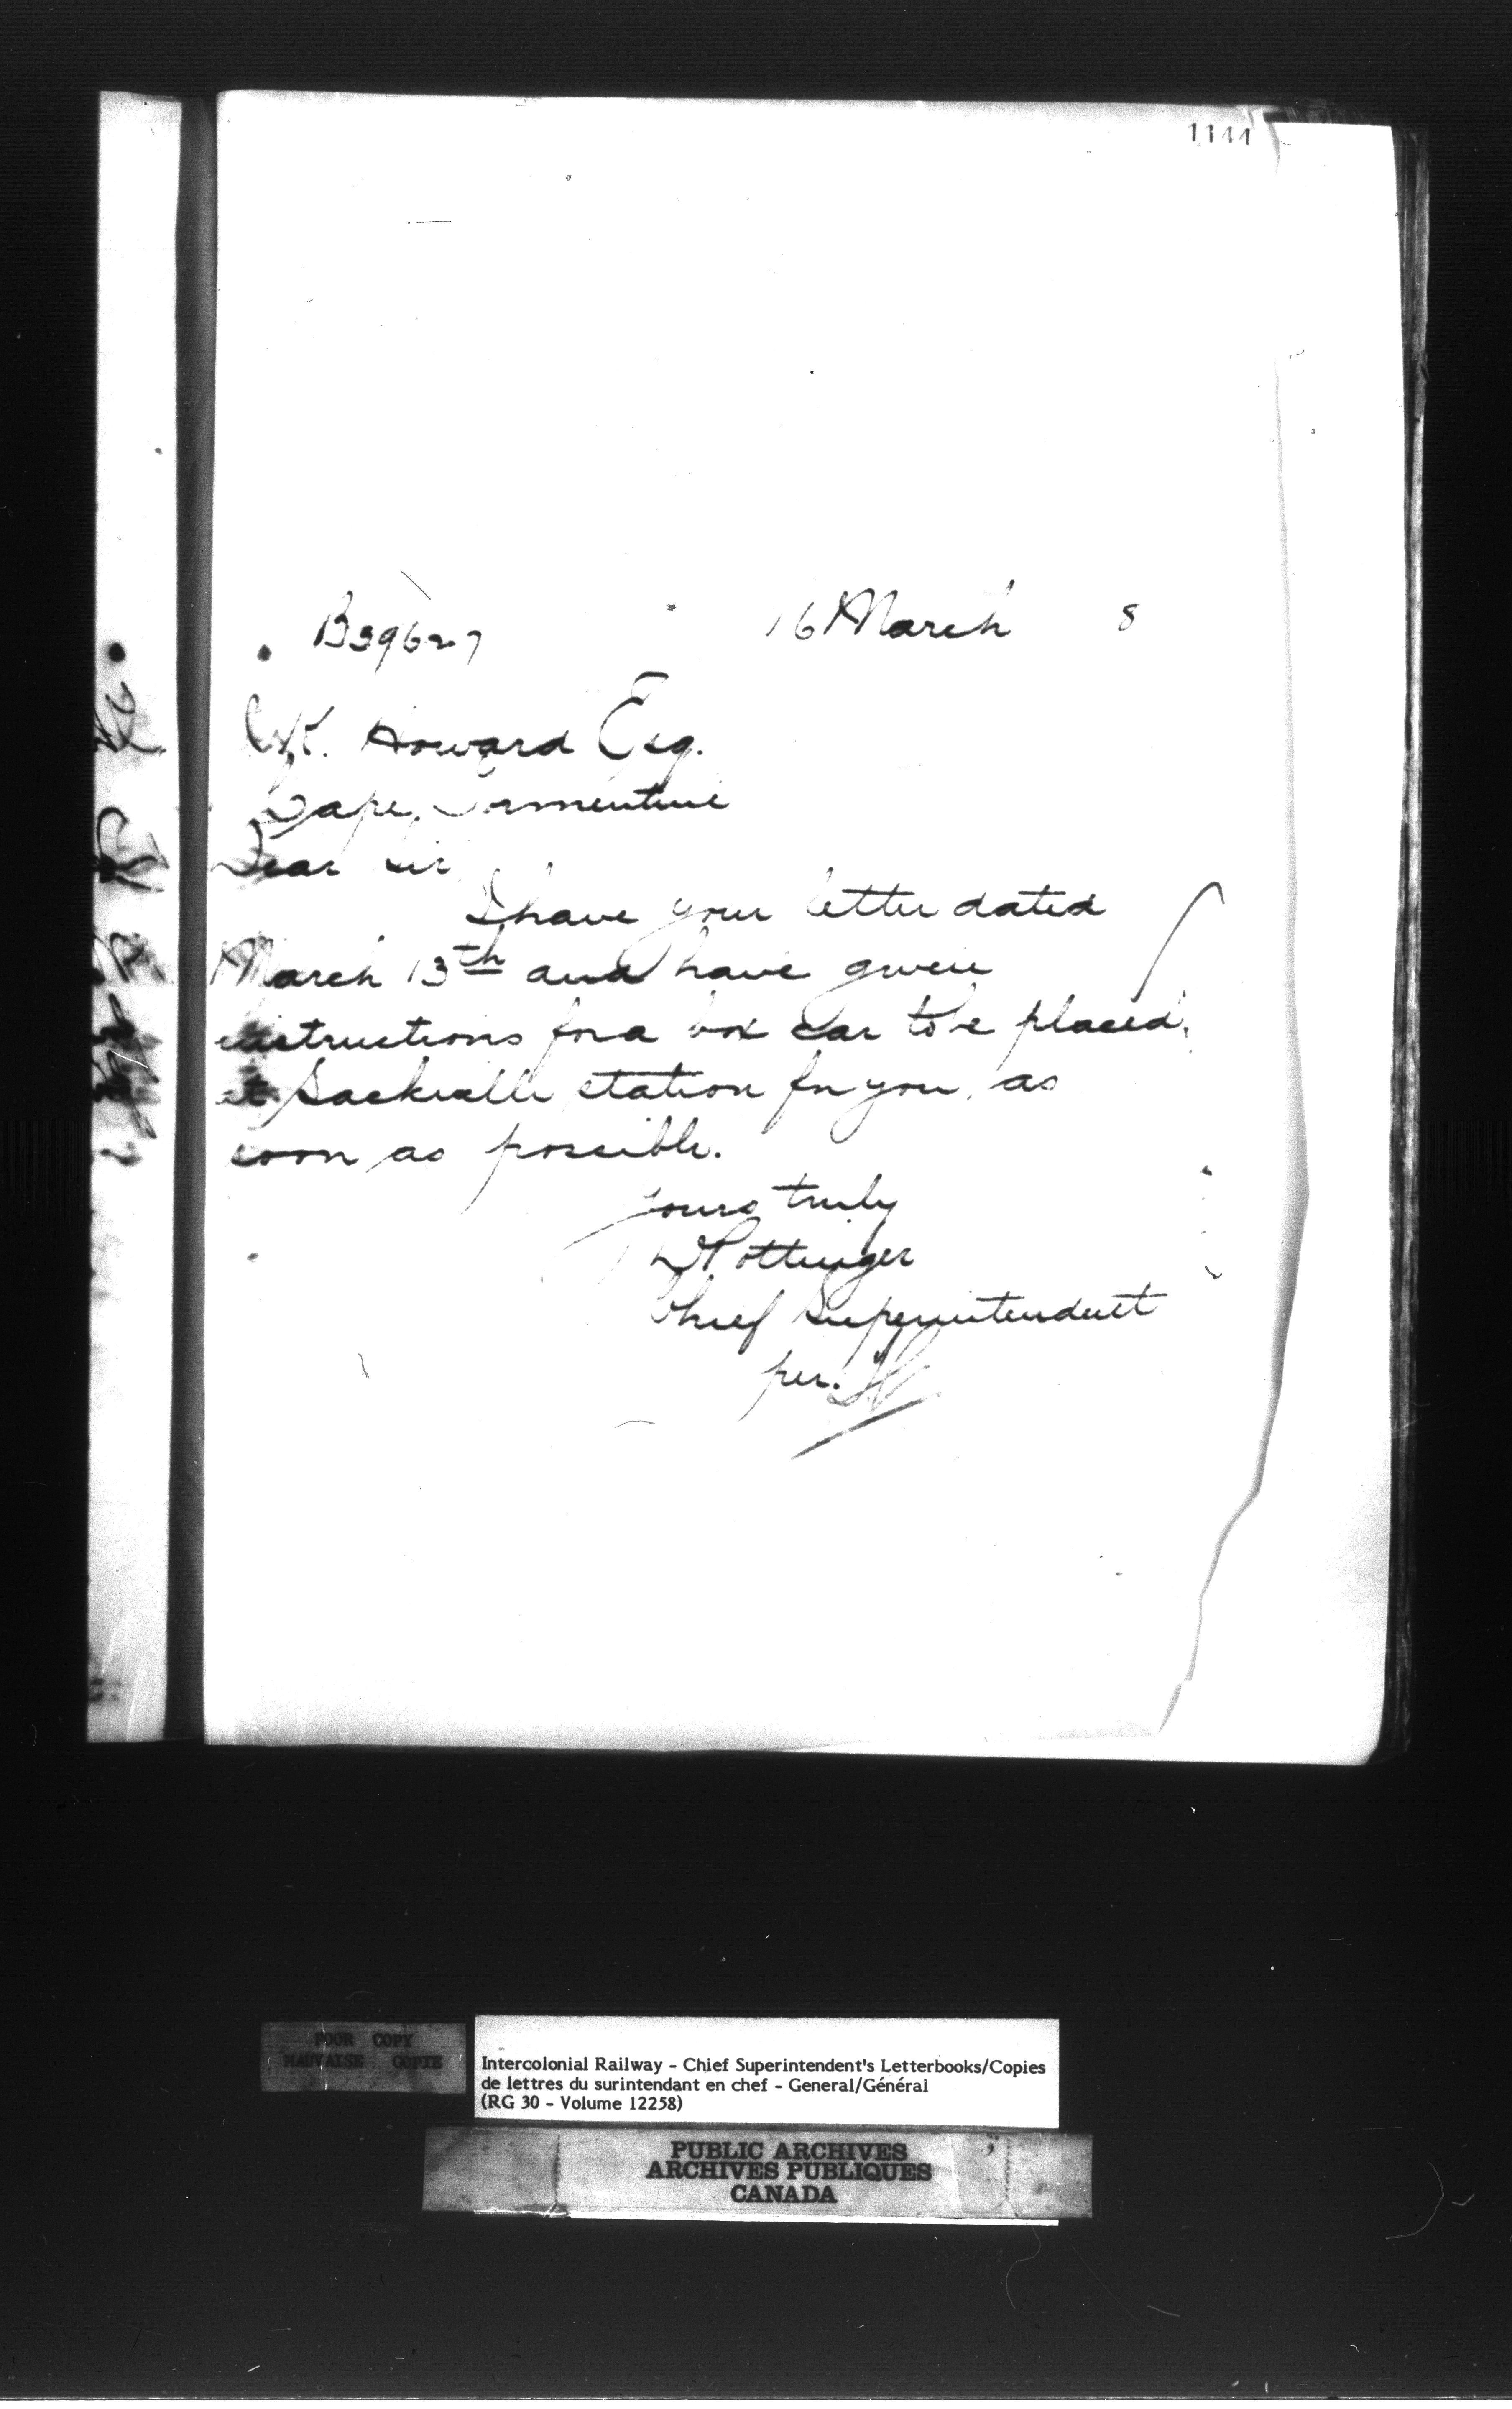 1144
B39627 16 March 8
Howard Esq.
Cape Tormentine
Dear Sir
I have your letter dated
March 13th and have given
instructions for a box car to be placed
at Sackville station for you as
soon as possible.
Yours truly
D Pottinger
Chief Superintendent
per.
POOR COPY
MAUVAISE COPIE
Intercolonial Railway - Chief Superintendent's Letterbooks/Copies
de lettres du surintendant en chef - General/Général
(RG 30 - Volume 12258)
PUBLIC ARCHIVES
ARCHIVES PUBLIQUES
CANADA